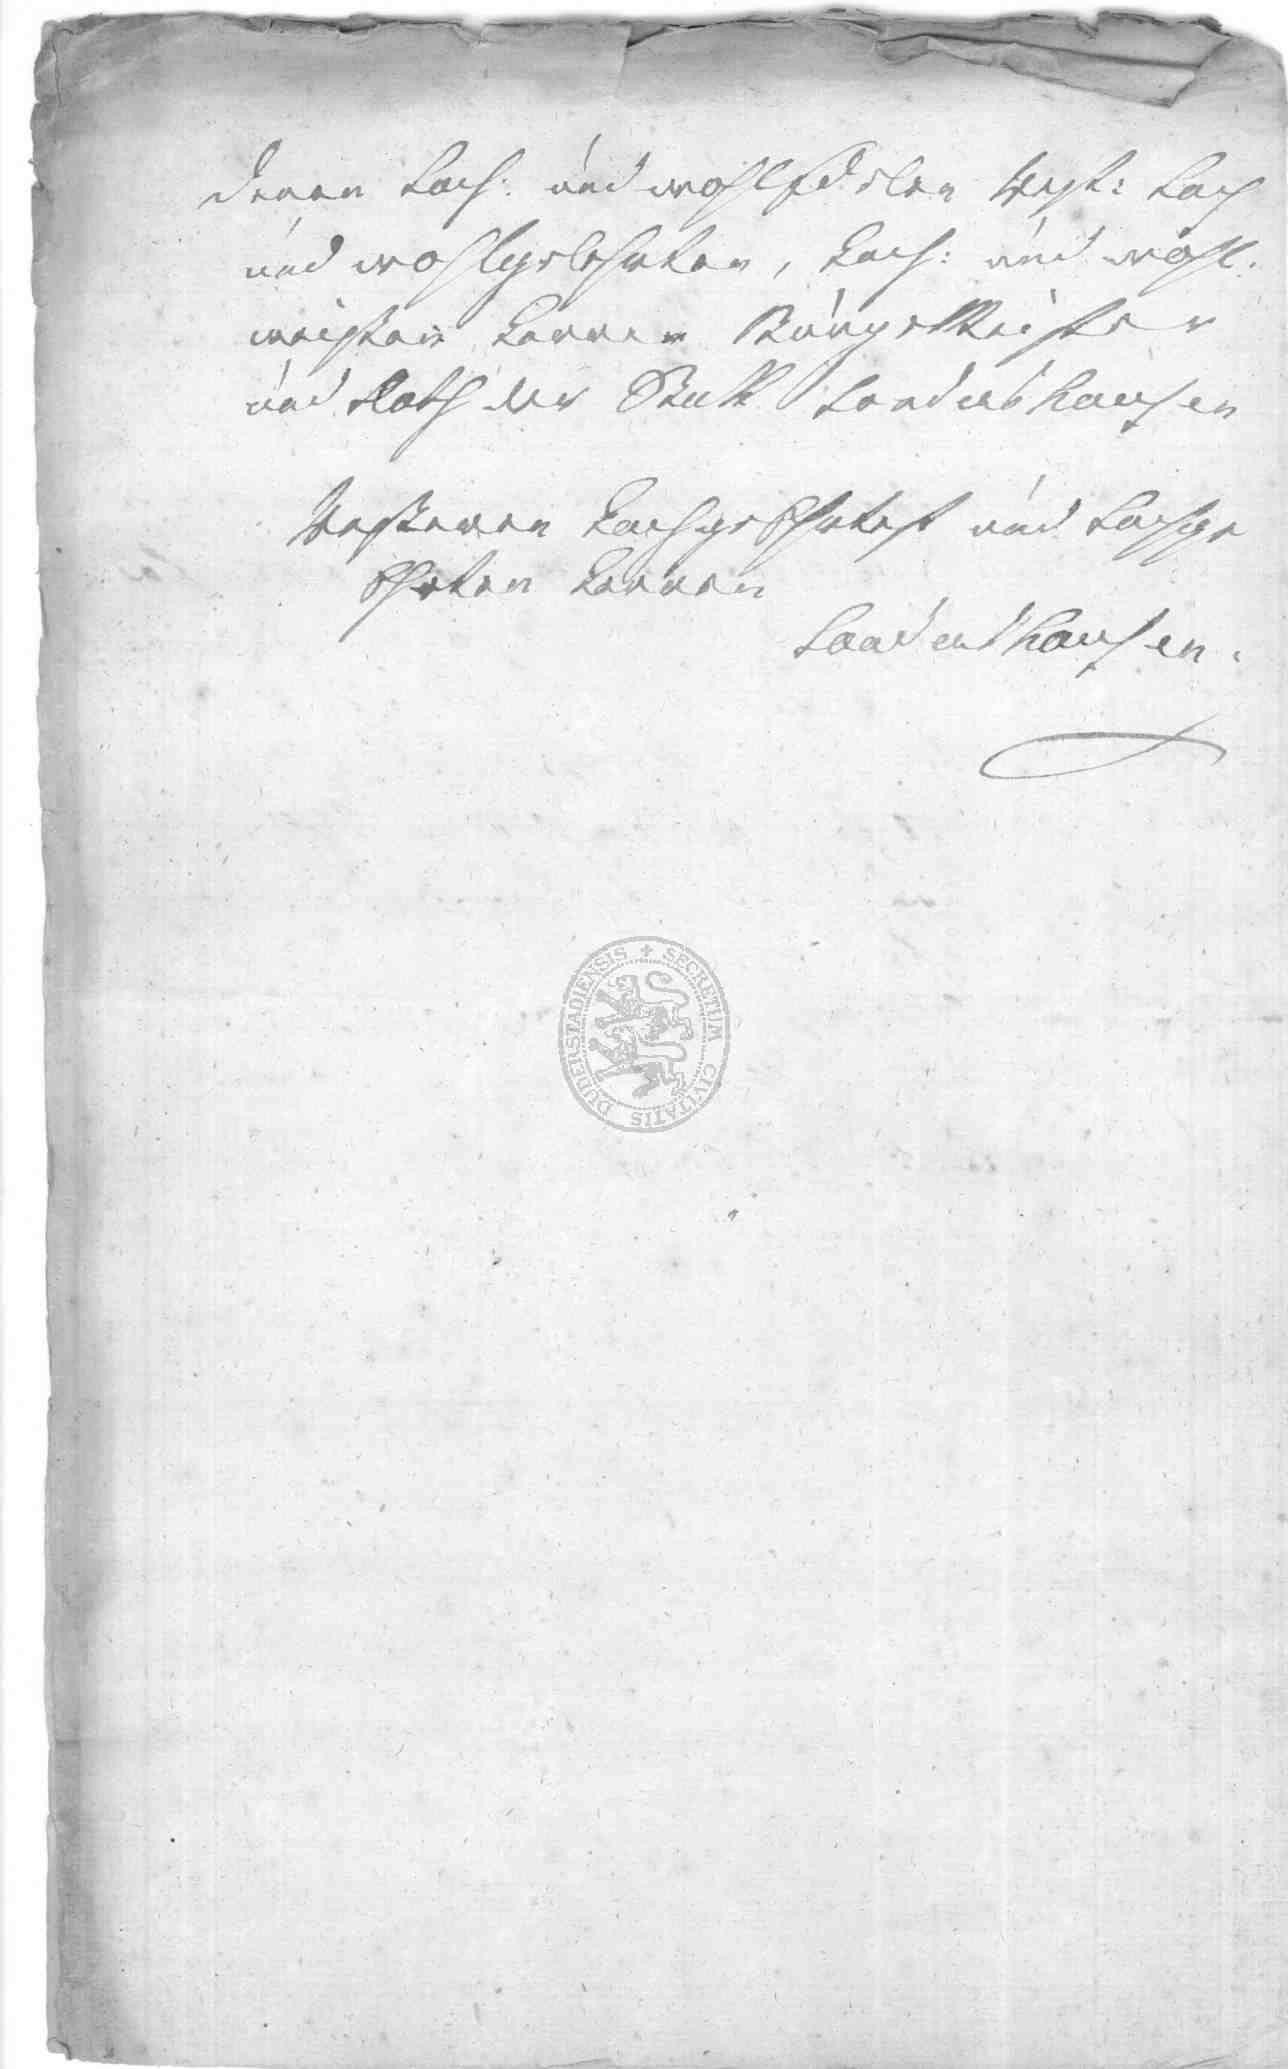 Denen Hoch: und wohlEdelen Vest: Hoch
und wohlgelehrten, Hoch: und wohl
weisen Herren BürgeMeister
und Rath der Statt Hendenhausen
Unseren Hochgeehrtest und Hochge
Ehrten Herren
SECRETUM CIVITATIS DUDERSTADIENSIS